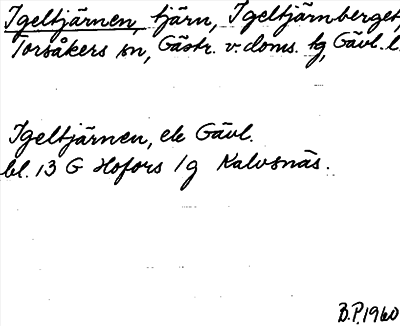 Igeltjärnen, tjärn, Igeltjärnberget,
Torsåkers sn, Gästr. v. doms. tg, Gävl. l.
Igeltjärnen, ek Gävl.
bl. 13 G Hofors 1g Kalvsnäs.
B.P. 1960